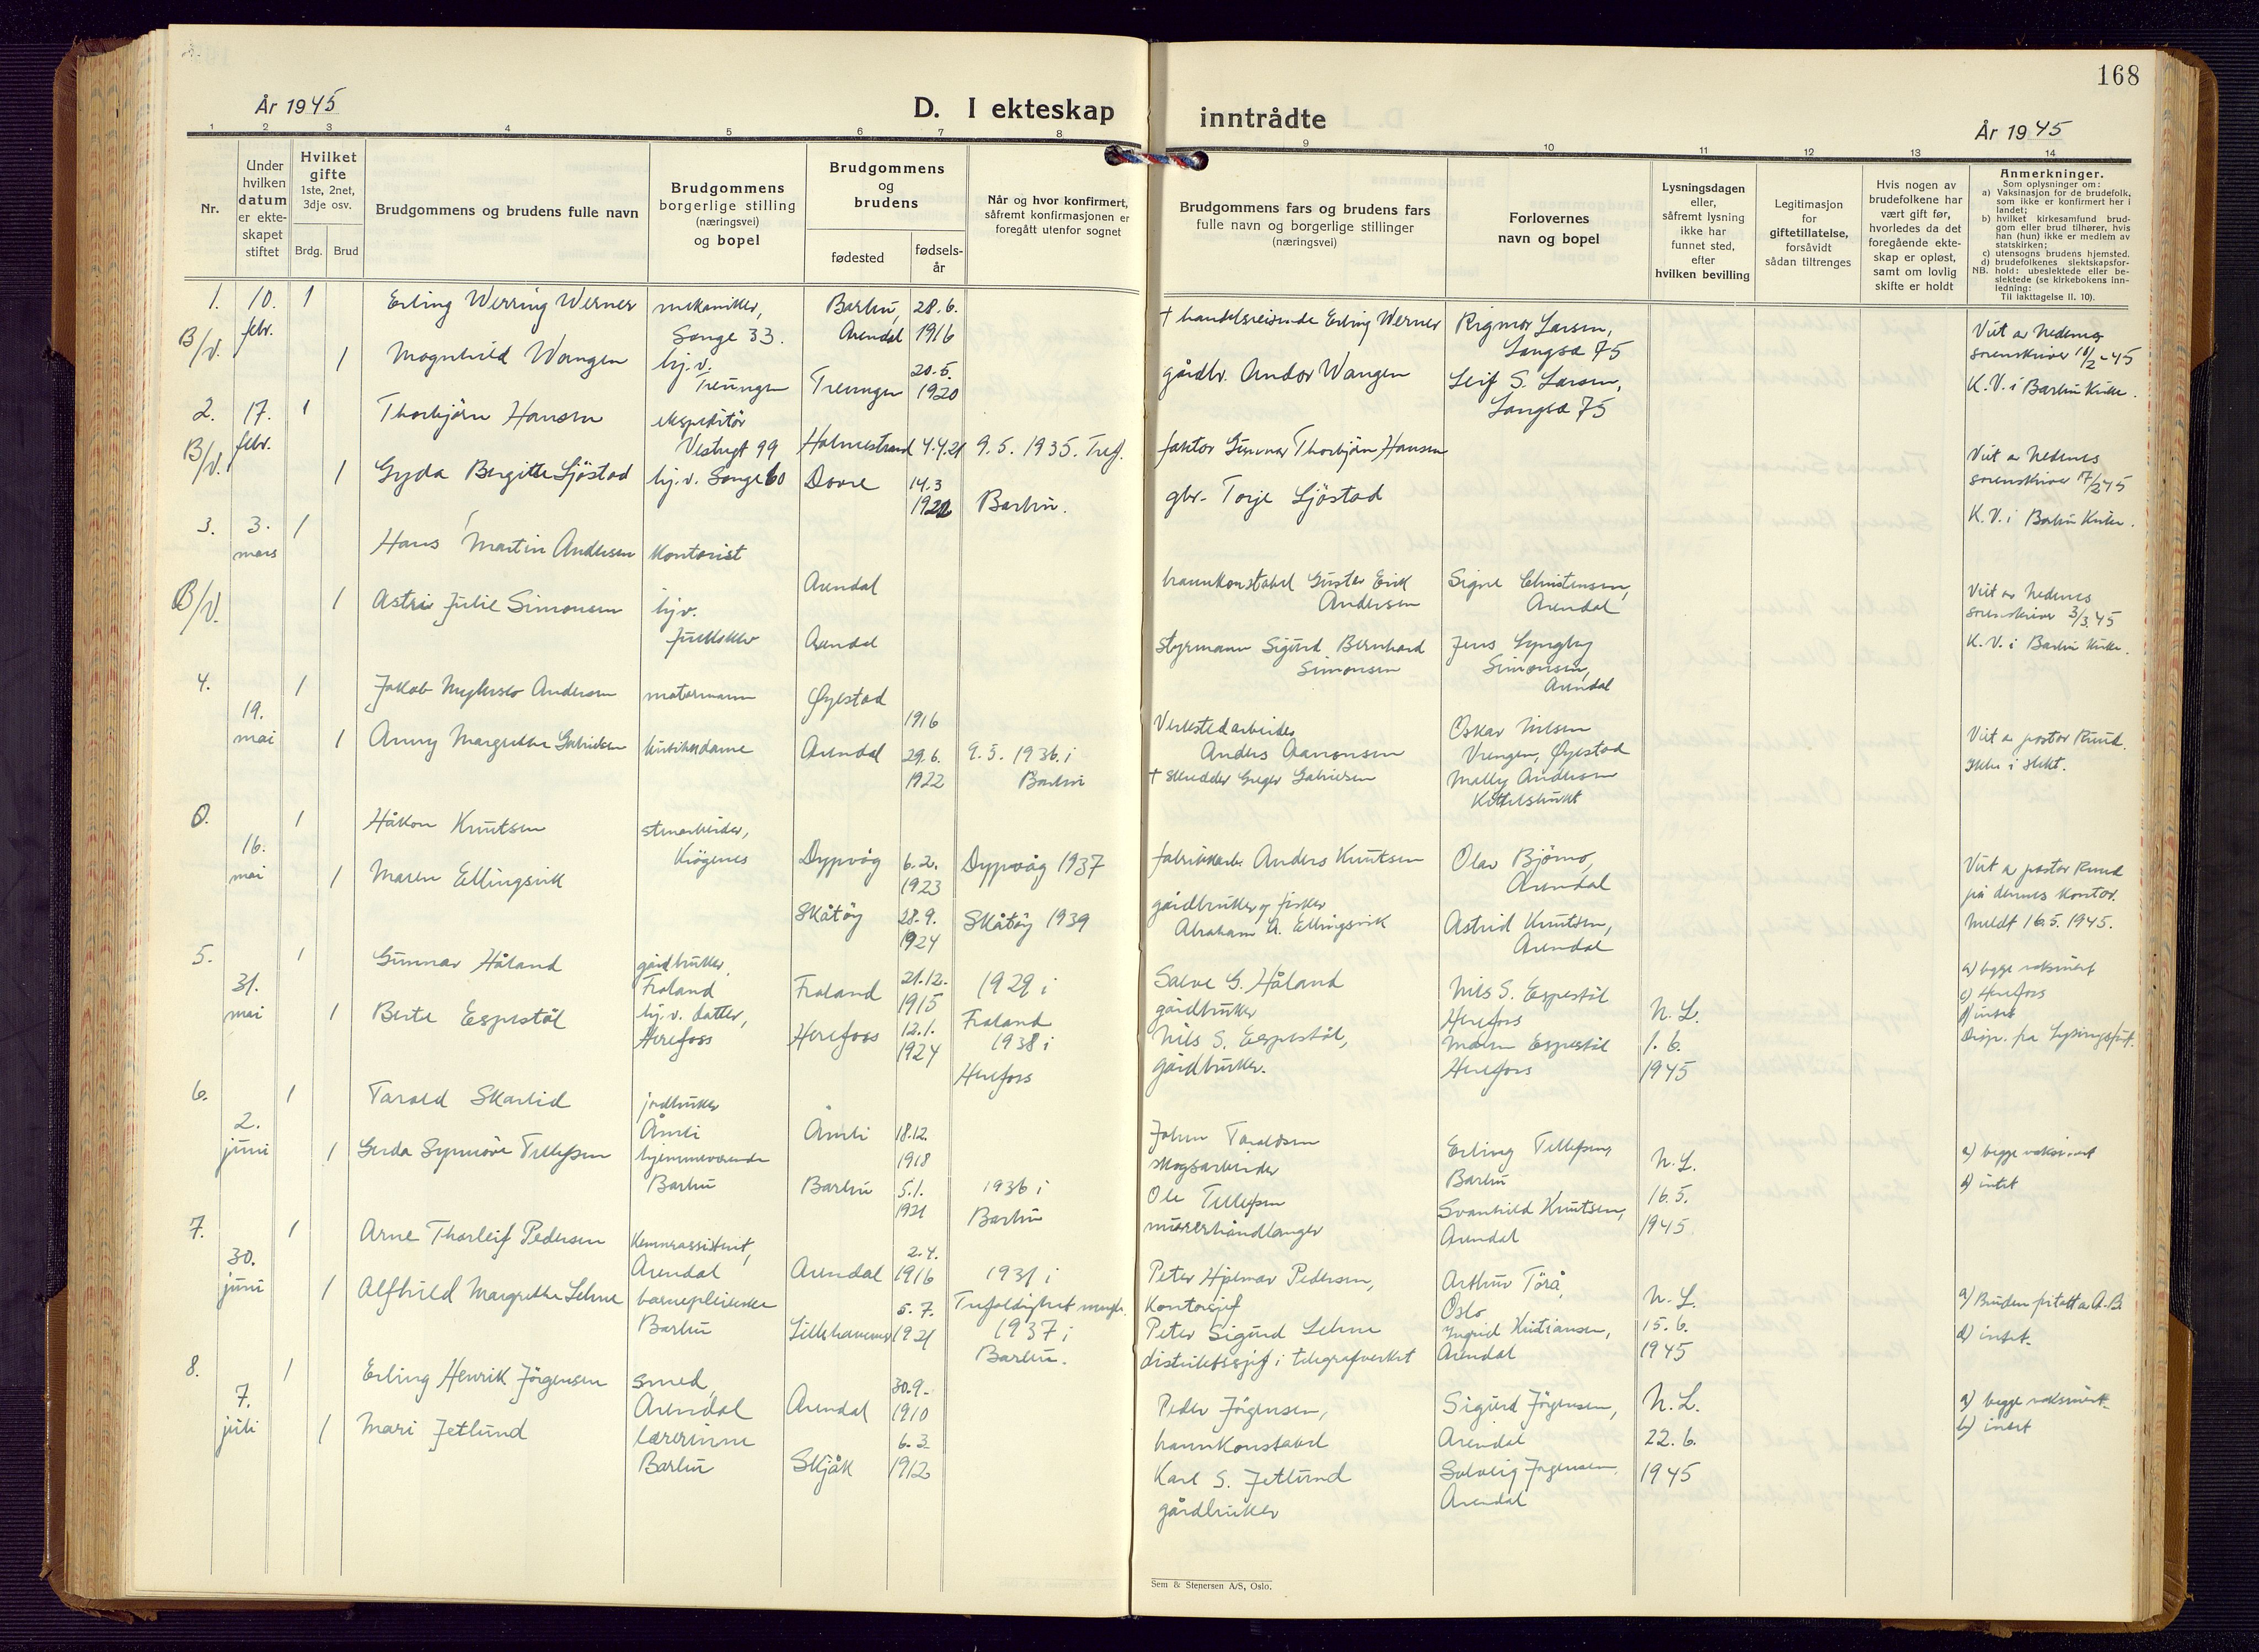 168
År 1945
D. I ekteskap
inntrådte
År 1945
1 2 3 4 5 6 7 8 9 10 11 12 13 14
Nr.
Under
hvilken
datum
er ekte-
skapet
stiftet
Hvilket
gifte
1ste, 2net,
3dje osv.
Brdg. Brud
Brudgommens og brudens fulle navn
Brudgommens
borgerlige stilling
(næringsvei)
og bopel
Brudgommens
og
brudens
fødested
fødsels-
år
Når og hvor konfirmert,
såfremt konfirmasjonen er
foregått utenfor sognet
Brudgommens fars og brudens fars
fulle navn og borgerlige stillinger
(næringsvei)
Forlovernes
navn og bopel
Lysningsdagen
eller,
såfremt lysning
ikke har
funnet sted,
efter
hvilken bevilling
Legitimasjon
for
giftetillatelse,
forsåvidt
sådan tiltrenges
Hvis nogen av
brudefolkene har
vært gift før,
hvorledes da det
foregående ekte-
skap er opløst,
samt om lovlig
skifte er holdt
Anmerkninger.
Som oplysninger om:
a) Vaksinasjon for de brudefolk,
som ikke er konfirmert her i
landet;
b) hvilket kirkesamfund brud-
gom eller brud tilhører, hvis
han (hun) ikke er medlem av
statskirken;
c) utensogns brudens hjemsted.
d) brudefolkenes slektskapsfor-
NB. hold: ubeslektede eller be-
slektede (se kirkebokens inn-
ledning:
Til iakttagelse II. 10).
1. 10. febr. 1 Erling Werring Werner mekaniker, Songe 33. Barbu, Arendal 28.6. 1916 † handelsreisende Erling Werner Rigmor Larsen, Langsæ 75
B/V. 1 Magnhild Wangen hj.v. Treungen Treungen 20.5. 1920 gårdbr. Andor Wangen Leif S. Larsen, Langsæ 75
Viet av Nedenes
sorenskriver 10/2-45
K.V. i Barbu Kirke.
2. 17. febr. 1 Thorbjørn Hansen ekspeditør Vestregt 99 Holmestrand 4.4.21 9.5.1935. Tref. faktor Gunnar Thorbjørn Hansen
B/V. 1 Gyda Bergitte Sjöstad hj.v. Songe 60 Dovre 14.3 1921 Barbu. gbr. Torje Sjöstad
Viet av Nedenes
sorenskriver 17/2 45
K.V. i Barbu Kirke.
3. 3. mars 1 Hans Martin Andersen kontorist Arendal havnkonstabel Gustav Erik Andersen Signe Christensen, Arendal
B/V. 1 Astri Julie Simonsen hj.v. Arendal styrmann Sigurd Bernhard Simonsen Jens Lyngby Simonsen, Arendal
Viet av Nedenes
sorenskriver 3/3.45
K.V. i Barbu Kirke.
4. 19. mai 1 Jakob Andersen motormann Øyestad 1916 Verkstedarbeider Anders Aanonsen Oskar Nilsen Vrengen, Øyestad
1 Anny Margrethe Gabrielsen butikkdame Arendal 29.6. 1922 9.5.1936. i Barbu † skredder Greger Gabrielsen Molly Andersen
Viet av pastor Ruud.
Ikke i slekt.
0. 16. mai 1 Håkon Knutsen stenarbeider, Krøgenes Dypvåg 6.2. 1923 Dypvåg 1937 fabrikkarb. Anders Knutsen Olav Bjørno, Arendal
1 Maren Ellingsvik Skåtøy 28.9. 1924 Skåtøy 1939 gårdbruker og fisker Abraham A. Ellingsvik Astrid Knutsen, Arendal
Viet av pastor Ruud
på dennes kontor.
Meldt 16.5.1945.
5. 31. mai 1 Gunnar Håland gårdbruker, Froland Froland 21.12. 1915 1929 i Froland Salve G. Håland gårdbruker Nils S. Espestøl Herefoss N.L.
1 Berte Espestøl hj.v. datter, Herefoss Herefoss 12.1. 1924 1938 i Herefoss Nils S. Espestøl, gårdbruker. Maren Espestøl Herefoss 1.6. 1945
a) begge vaksinert
c) Herefoss
d) intet
Disp. fra lysingsfrist.
6. 2. juni 1 Tarald Skarlid jordbruker Åmli Åmli 18.12. 1918 John Taraldsen skogsarbeider Erling Tellefsen, Barbu N.L.
1 Gerda Synnøve Tellefsen hjemmeværende Barbu Barbu 5.1. 1921 1936 i Barbu Ole Tellefsen murerhåndlanger Svanhild Knutsen, Arendal 16.5. 1945
a) begge vaksinert
d) intet
7. 30. juni 1 Arne Thorleif Pedersen kemnerassistent, Arendal Arendal 2.4. 1916 1931 i Trefoldighet mengh. Peter Hjalmar Pedersen, Kontorsjef Arthur Törå, Oslo N.L.
1 Alfhild Margrethe Lehne barnepleierske Barbu Lillehammer 5.7. 1921 1937 i Barbu. Peter Sigurd Lehne distriktssjef i telegrafverket Ingrid Kristiansen, Arendal 15.6. 1945
d) intet.
8. 7. juli 1 Erling Henrik Jörgensen smed, Arendal Arendal 30.9. 1910 Peder Jörgensen, havnkonstabel Sigurd Jörgensen, Arendal N.L.
1 Mari Jetlund lærerinne Barbu Skjåk 6.3. 1912 Karl S. Jetlund gårdbruker Solveig Jörgensen. Arendal 22.6. 1945
a) begge vaksinert.
b) intet
Sem & Stenersen A/S, Oslo.